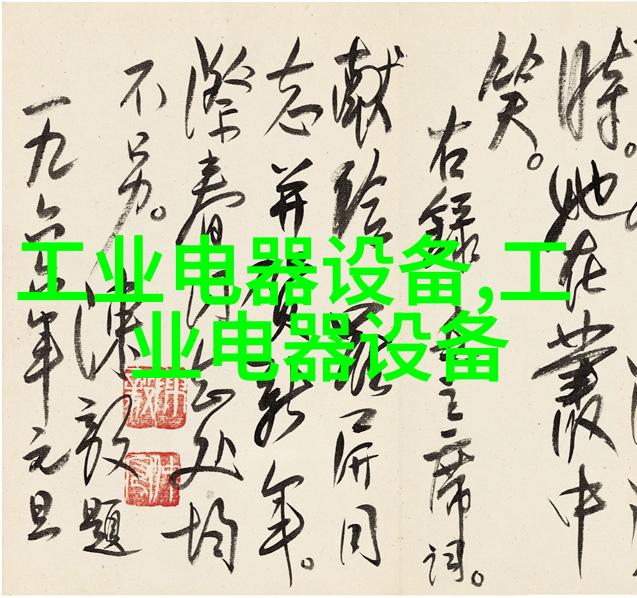 工业电器设备,工
业电器设备
时。她在叢中
笑。
右録主席词。
献给同
志并贺新年。
际春处均
不另。陳毅題
一九六年元旦